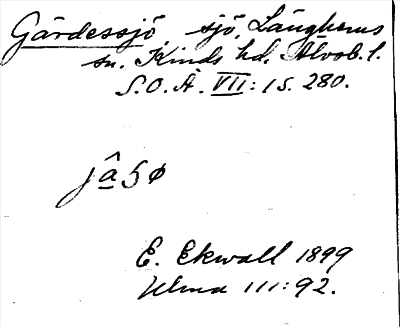 Gärdessjö sjö, Länghems
sn. Kinds hd. Älvsb. l.
S.O.Ä. VII: 1 s. 280.
E. Ekwall 1899
Ulma III: 92.